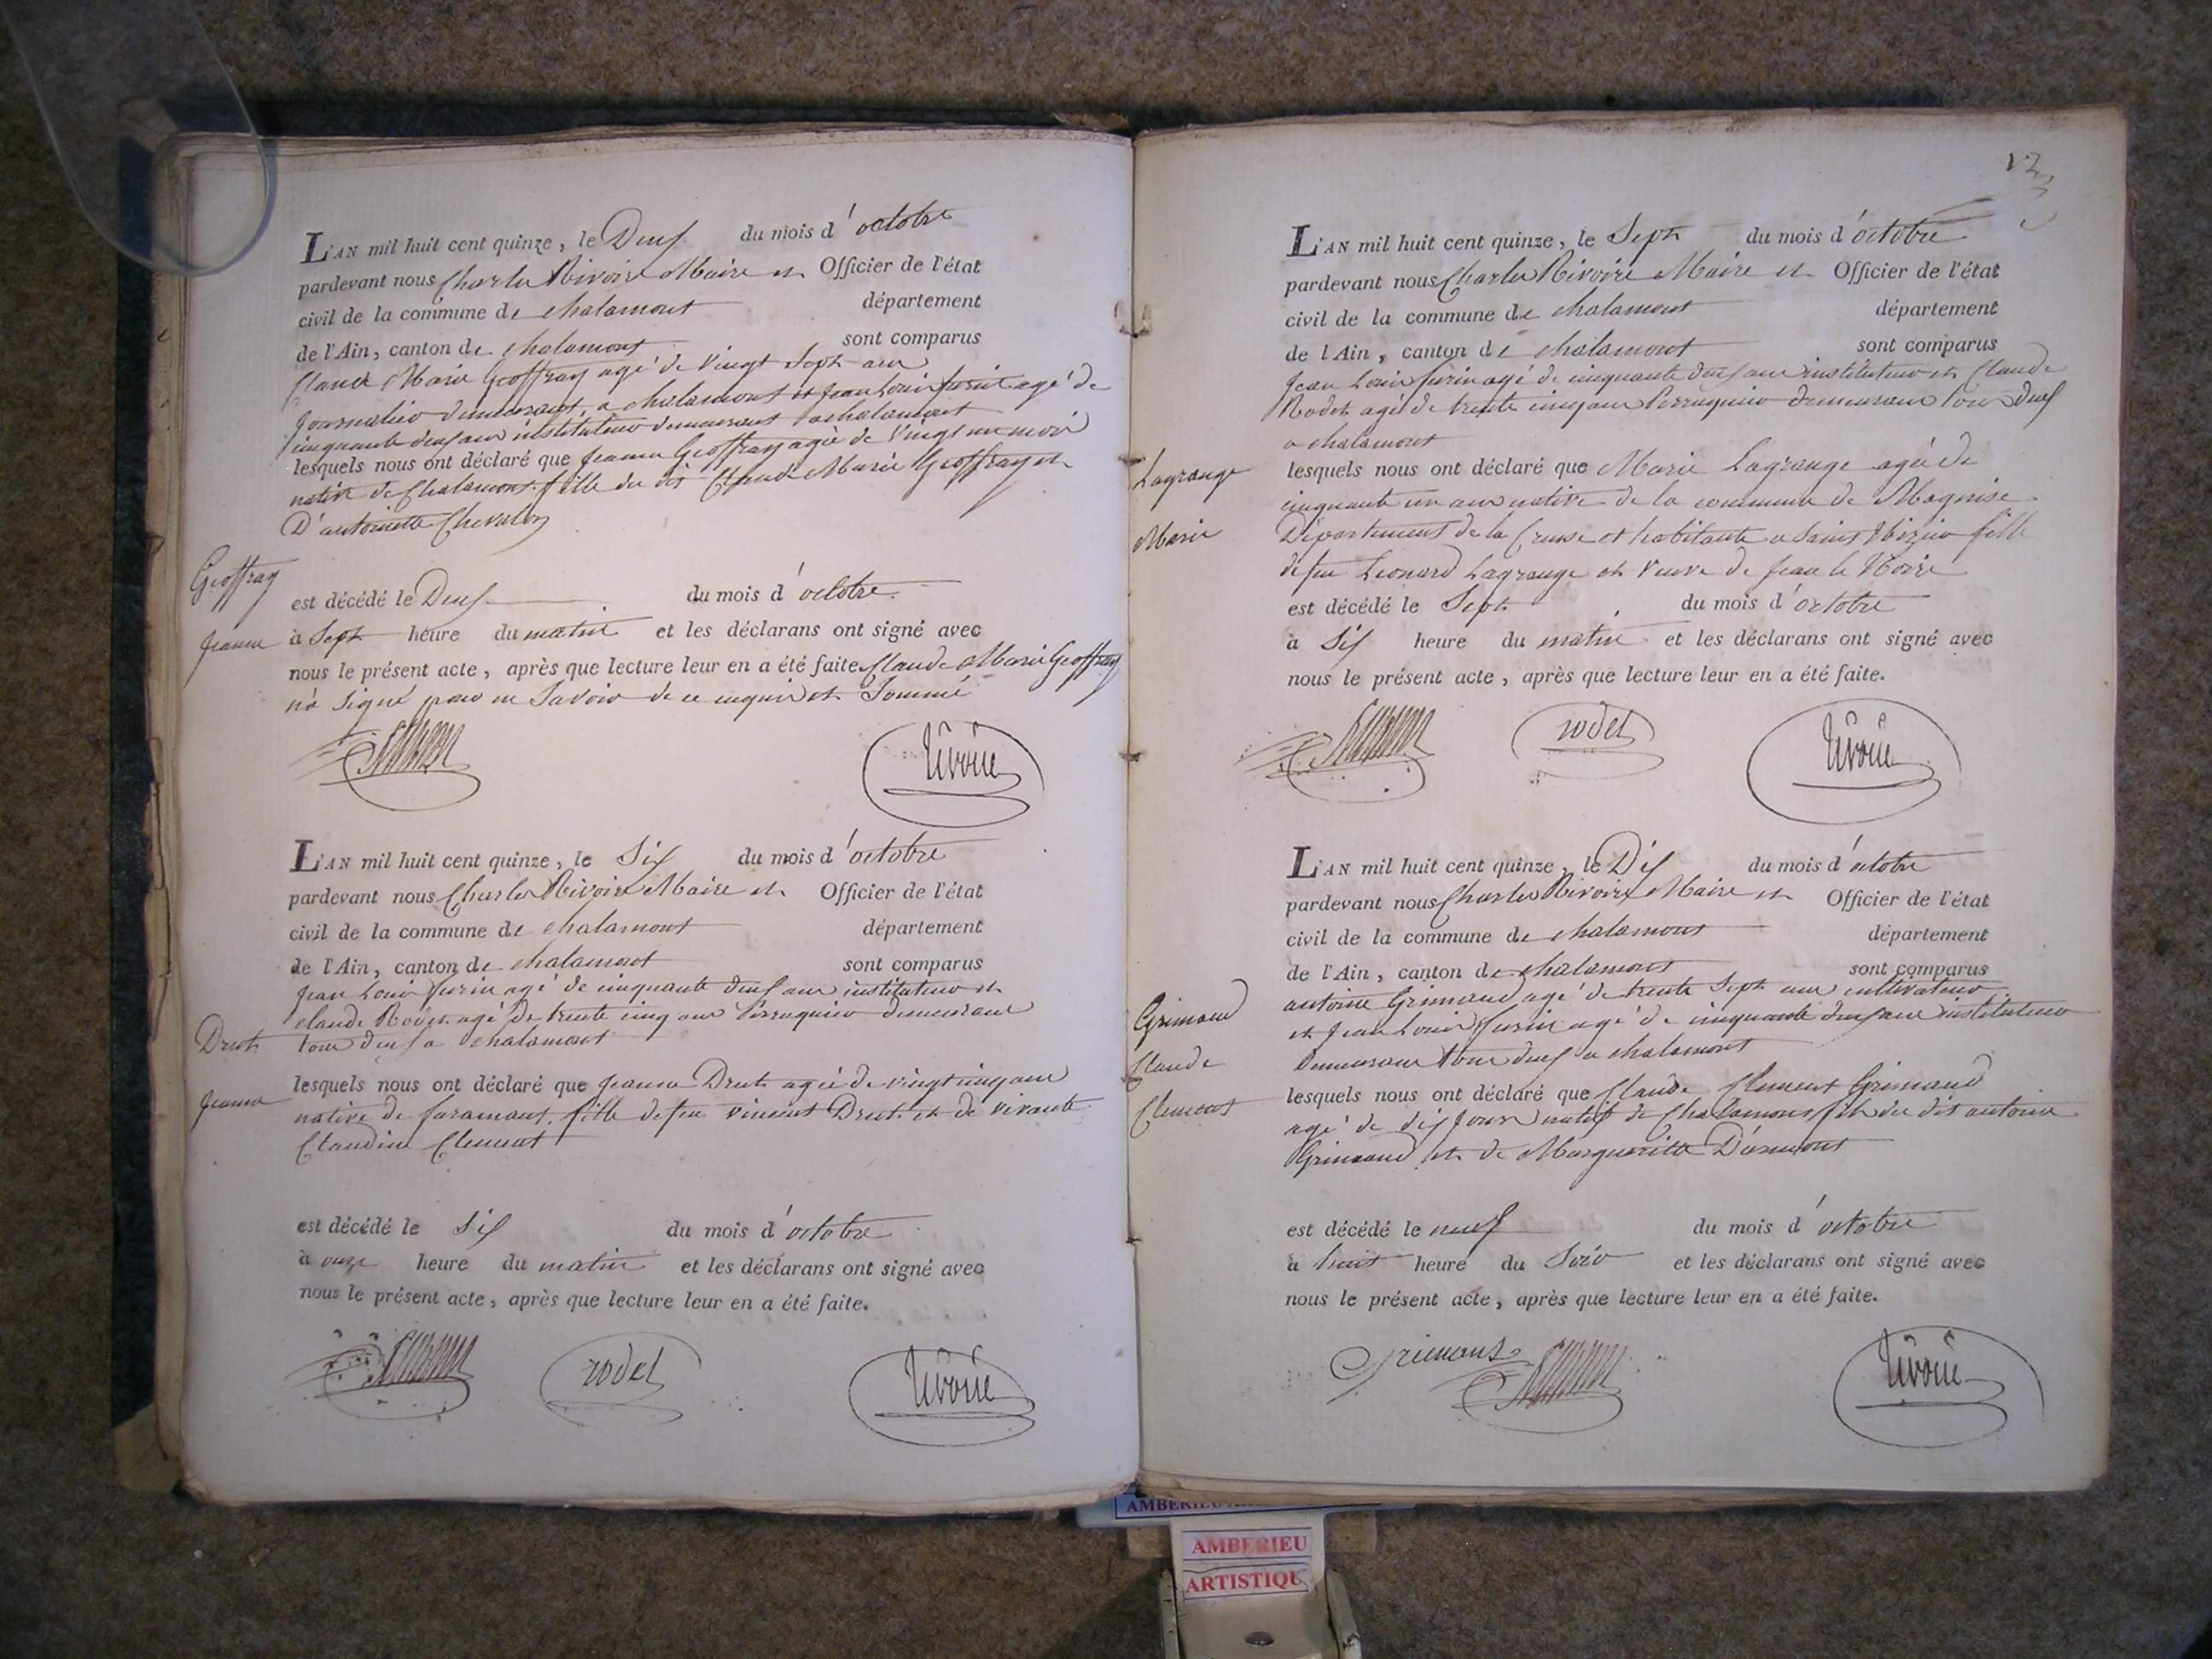 L'AN mil huit cent quinze, le Deux du mois d'octobre
pardevant nous Charles Rivoire Maire et Officier de l'état
civil de la commune de chalamont département
de l'Ain, canton de chalamont sont comparus
Claude Marie Geoffray agé de vingt sept ans
Journalier demeurant a chalamont et Jean Louis agé de
cinquante deux ans instituteur demeurant a chalamont
lesquels nous ont déclaré que Jeanne Geoffray agée de vingt un mois
native de Chalamont fille du dit Claude Marie Geoffray et
D'antoinette Chevalon
Geoffray
Jeanne
est décédé le Deux du mois d'octobre
à Sept heure du matin et les déclarans ont signé avec
nous le présent acte, après que lecture leur en a été faite. Claude Marie Geoffray
na signé pour ne savoir de ce enquis et Sommé
rivoire
L'AN mil huit cent quinze, le Six du mois d'octobre
pardevant nous Charles Rivoire Maire et Officier de l'état
civil de la commune de chalamont département
de l'Ain, canton de chalamont sont comparus
Jean Louis agé de cinquante deux ans instituteur et
claude Rodet agé de trente cinq ans Perruquier demeurant
tous deux a chalamont
Druet
Jeanne
lesquels nous ont déclaré que Jeanne Druet agée de vingt cinq ans
native de faramans, fille de feu vincent Druet et de vivante
Claudine Clement
est décédé le Six du mois d'octobre
à onze heure du matin et les déclarans ont signé avec
nous le présent acte, après que lecture leur en a été faite.
rodet rivoire
L'AN mil huit cent quinze, le Sept du mois d'octobre
pardevant nous Charles Rivoire Maire et Officier de l'état
civil de la commune de chalamont département
de l'Ain, canton de chalamont sont comparus
Jean Louis agé de cinquante deux ans instituteur et Claude
Rodet agé de trente cinq ans Perruquier demeurant tous deux
a chalamont
Lagrange
Marie
lesquels nous ont déclaré que Marie Lagrange agée de
cinquante un ans native de la commune de
Département de la Creuse et habitante a Saint fille
de feu Leonard Lagrange et veuve de Jean le Noire
est décédé le Sept du mois d'octobre
à Six heure du matin et les déclarans ont signé avec
nous le présent acte, après que lecture leur en a été faite.
rodet rivoire
L'AN mil huit cent quinze, le Dix du mois d'octobre
pardevant nous Charles Rivoire Maire et Officier de l'état
civil de la commune de chalamont département
de l'Ain, canton de chalamont sont comparus
antoine Grimaud agé de trente Sept ans cultivateur
et Jean Louis agé de cinquante deux ans instituteur
demeurant tous deux a chalamont
Grimaud
Claude
Clement
lesquels nous ont déclaré que Claude Clement Grimaud
agé de dix Jours natif de Chalamont fils du dit antoine
Grimaud et de Margueritte
est décédé le neuf du mois d'octobre
à huit heure du Soir et les déclarans ont signé avec
nous le présent acte, après que lecture leur en a été faite.
rivoire
AMBERIEU
AMBERIEU
ARTISTIQU